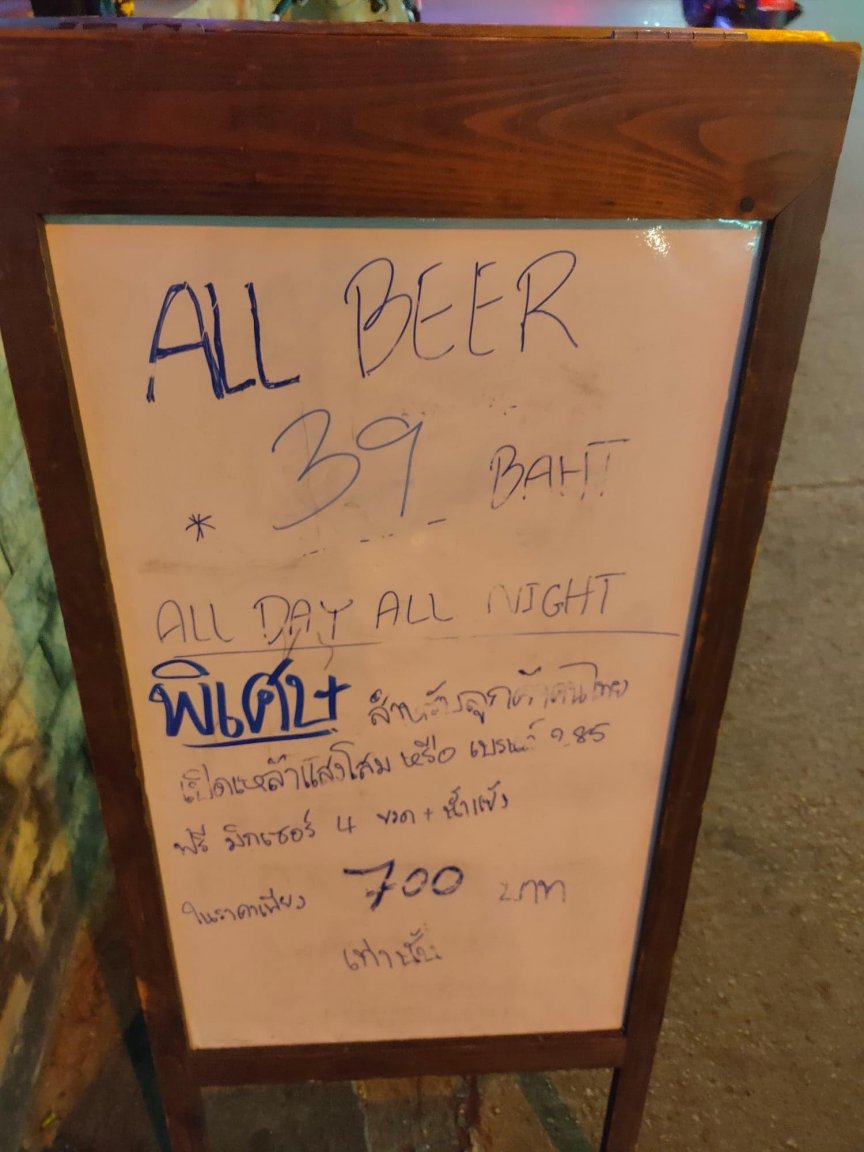 ALL BEER
* 39 BAHT
ALL DAY ALL NIGHT
พิเศษ สำหรับลูกค้าคนไทย
เปิดเหล้าแสงโสม หรือ เบรนด์ 285
ฟรี มิกเซอร์ 4 ขวด + น้ำแข็ง
ในราคาเพียง 700 บาท
เท่านั้น